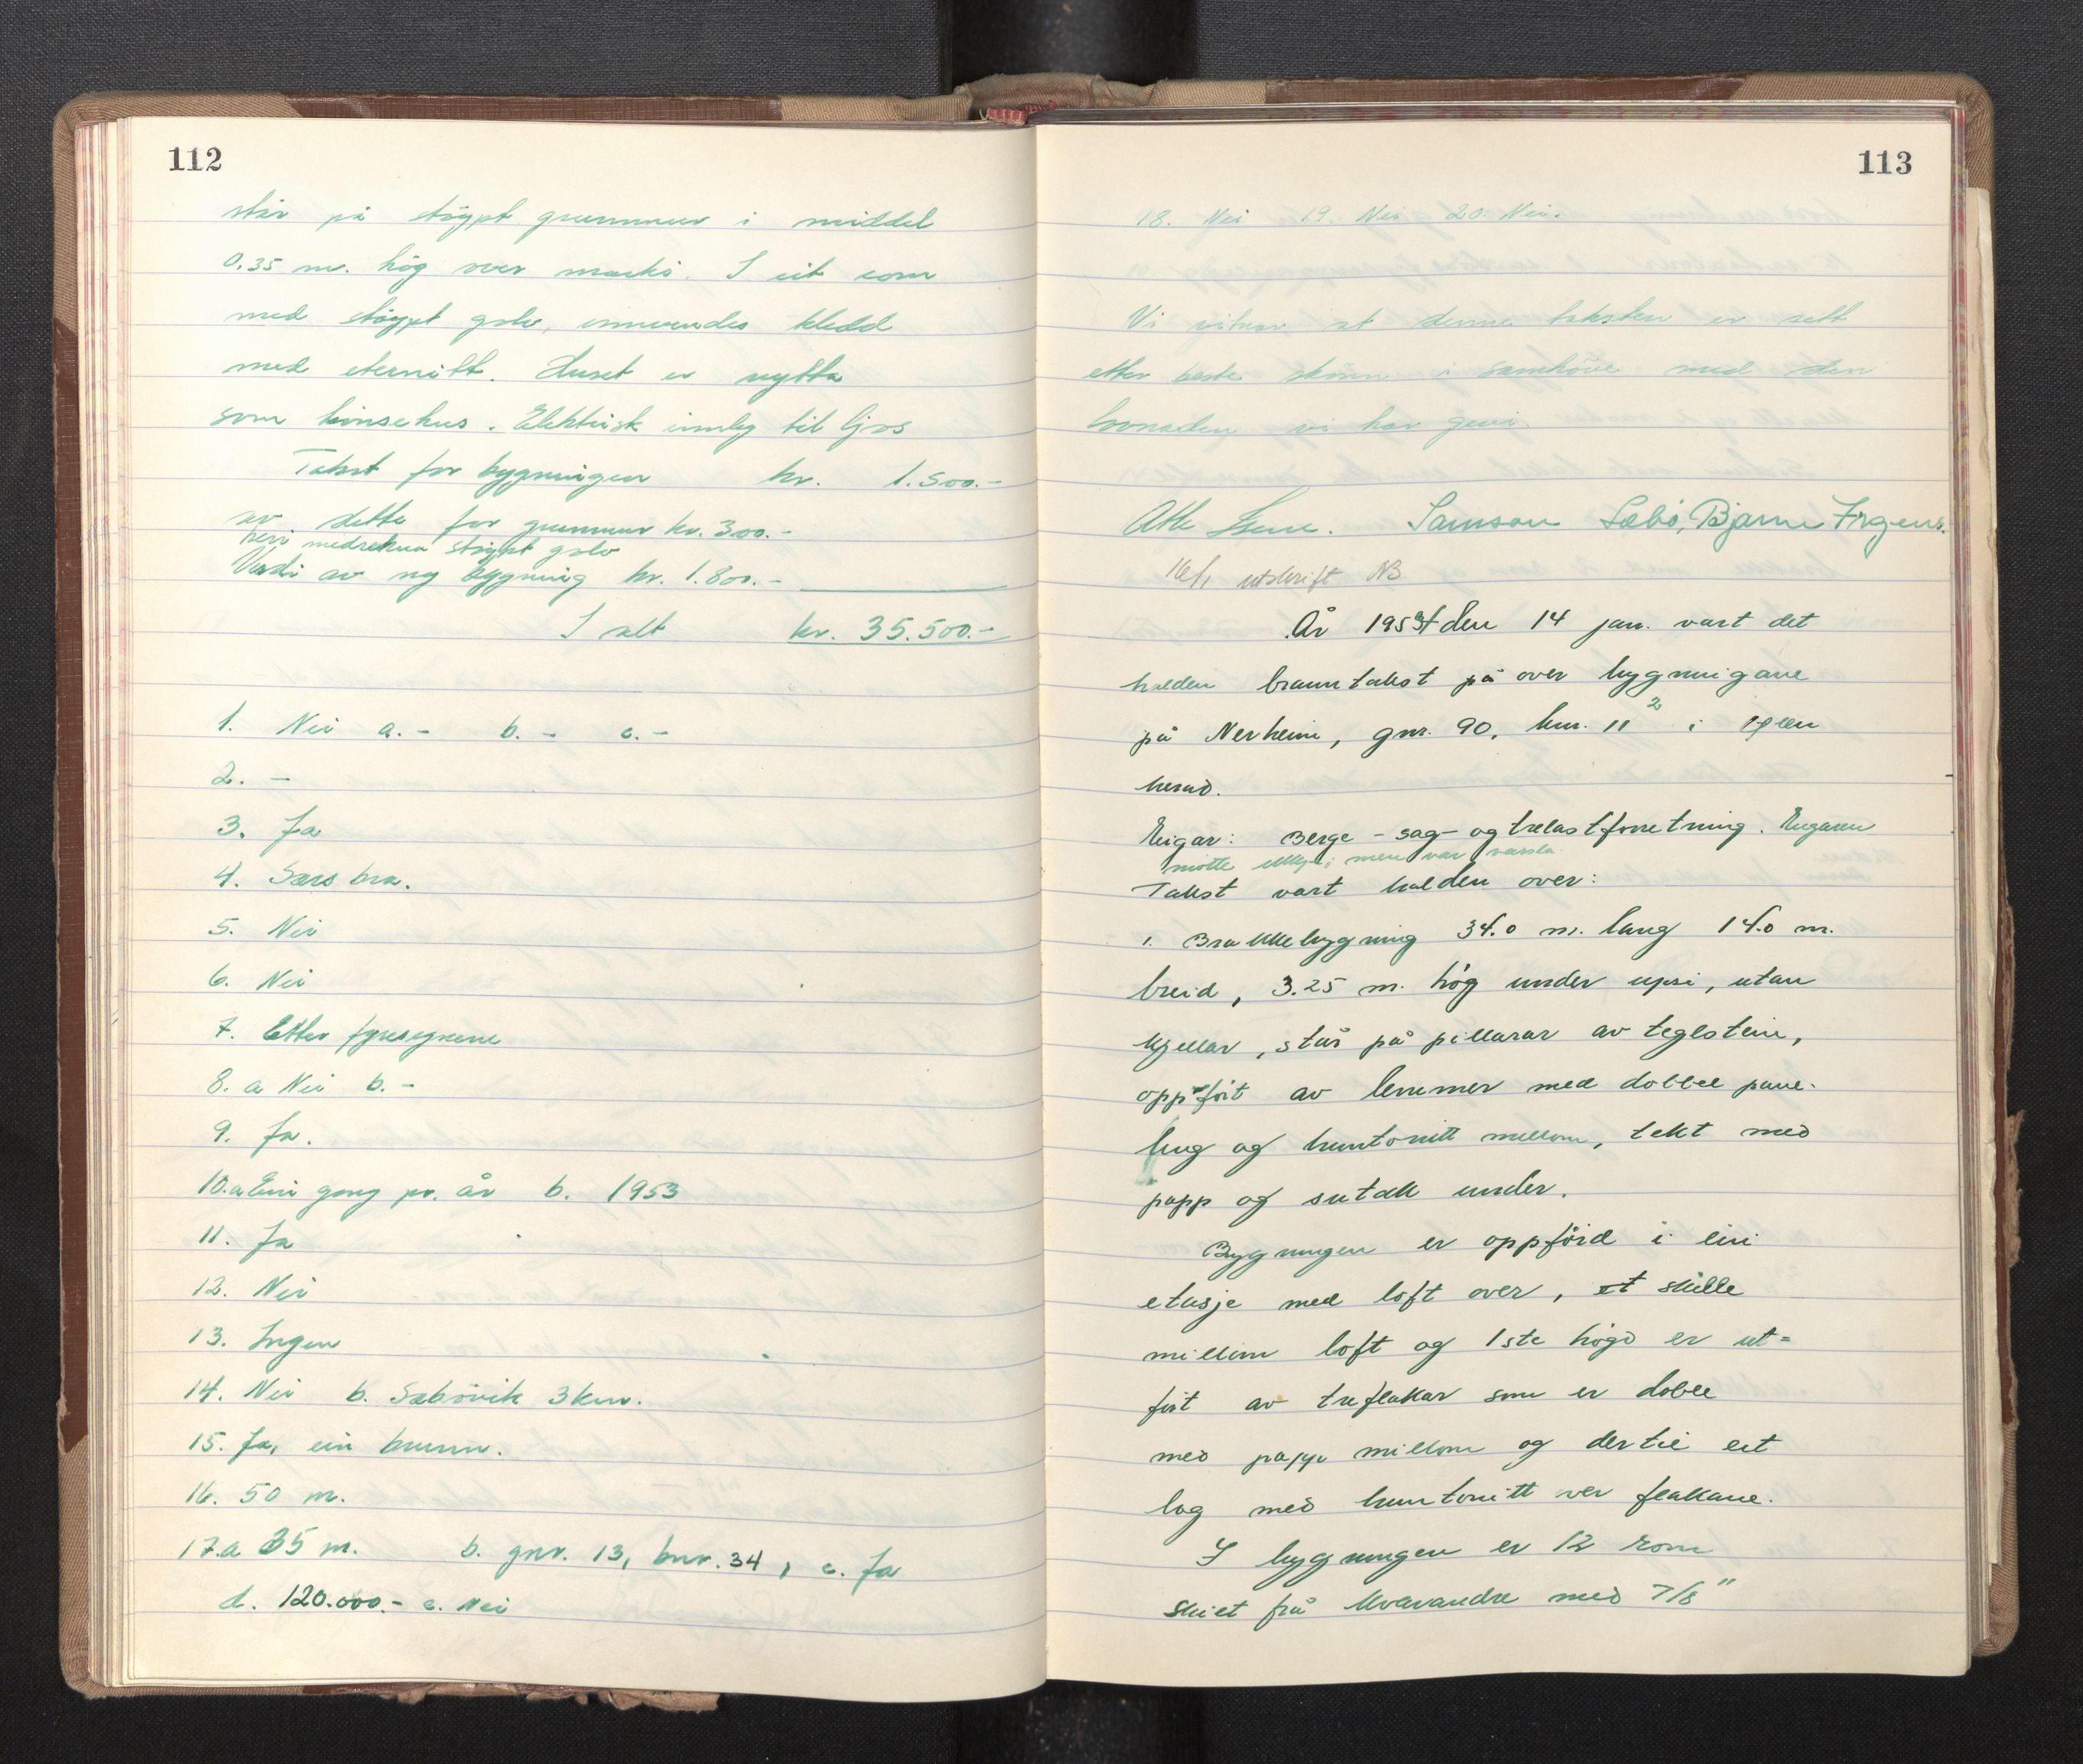 112
står på støypt grunnmur i middel
0.35 m. høg over marki. I eit rom
med støypt golv, innvendes kledd
med eternitt. Huset er nytta
som hønsehus. Elektrisk innlag til ljos
Takst for bygningen kr. 1.500.-
av dette for grunnmur kr. 300.-
heri medrekna støypt golv
Verdi av ny bygning kr. 1.800.-
I alt kr. 35.500.-
1. Nei a. - b. - c. -
2. -
3. Ja
4. Særs bra.
5. Nei
6. Nei
7. Etter fyresegnene
8. a Nei b. -
9. Ja.
10. a Ein gong pr. år b. 1953
11. Ja
12. Nei
13. Ingen
14. Nei b. Sæbövik 3 km.
15. Ja, ein brunn.
16. 50 m.
17. a 35 m. b. gnr. 13, bnr. 34, c. Ja
d. 120.000.- e. Nei
113
18. Nei 19. Nei 20. Nei.
Vi vitnar at denne taksten er sett
etter beste skönn i samhöve med den
lovnaden vi har gevi.
Atle Samson Sæbö, Bjarne
16/1 utskrift NB
År 1954 den 14 jan. vart det
halden branntakst på over bygningane
på Nerheim, gnr. 90, bnr. 11² i Ølen
herad.
Eigar: Berge - sag- og trelastforretning. Eigaren
møtte ikkje, men var varsla.
Takst vart halden over:
1. Brakkebygning 34.0 m. lang 14.0 m.
breid, 3.25 m. høg under upsi, utan
kjellar, står på pillarar av teglstein,
oppført av lemmer med dobbel pane-
ling og huntonitt millom, tekt med
papp og sutak under.
Bygningen er oppförd i ein
etasje med loft over, et skille
millom loft og 1ste högd er ut=
ført av treflakar som er doble
med papp millom og dertil eit
lag med huntonitt over flakane.
I bygningen er 12 rom
skiet frå kvarandre med 7/8"